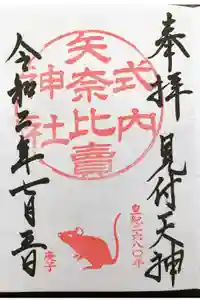 奉拝 見付天神
式内
矢奈比賣
神社
皇紀二六八〇年
令和二年七月五日
庚子